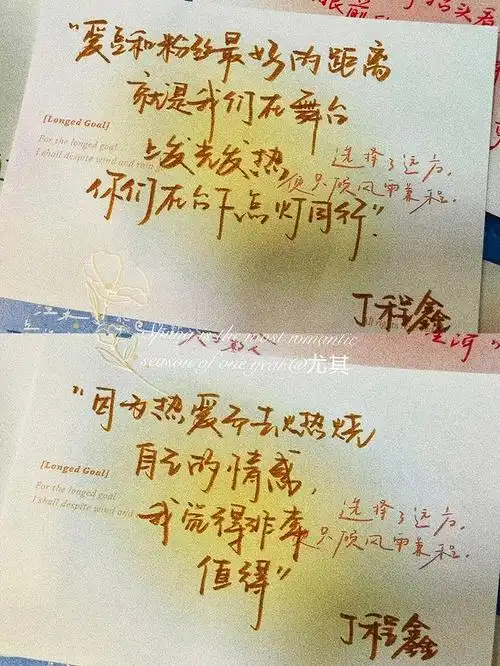 "爱豆和粉丝最好的距离
就是我们在舞台
[Longed Goal]
For the longed goal
I shall despite wind and rain
上发光发热,
选择了远方,
便只顾风雨兼程.
你们在台下点灯同行".
丁程鑫
Spring is the most romantic
season of one year.@尤其
"因为热爱而去燃烧
[Longed Goal]
自己的情感,
For the longed goal
I shall despite wind and
选择了远方,
只顾风雨兼程.
我觉得非常
值得"
丁程鑫